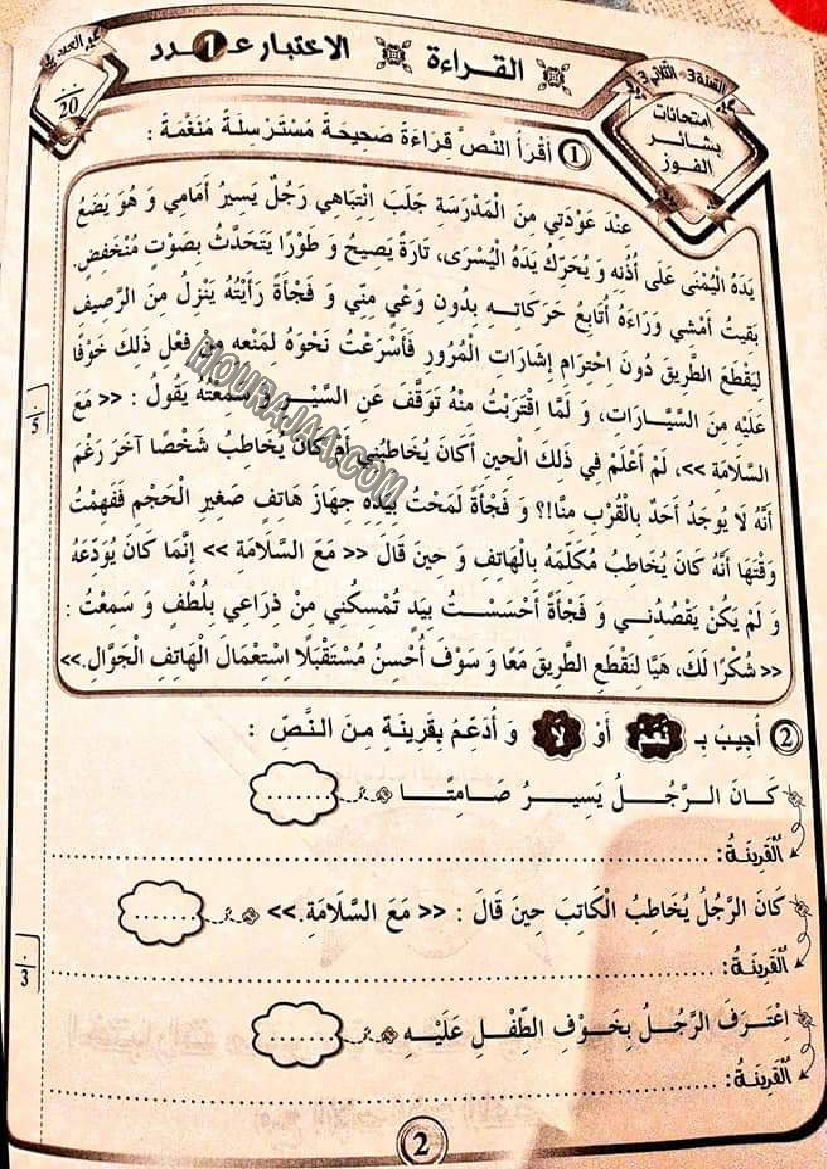 العدد
20
القراءة الاختبار عـ1ـدد
السنة 3 - الثلاثي 3
امتحانات
بشائر
الفوز
1 أَقْرَأُ النَّصَّ قِرَاءَةً صَحِيحَةً مُسْتَرْسِلَةً مُنَغَّمَةً :
عِنْدَ عَوْدَتِي مِنَ الْمَدْرَسَةِ جَلَبَ اِنْتِبَاهِي رَجُلٌ يَسِيرُ أَمَامِي وَ هُوَ يَضَعُ
يَدَهُ الْيُمْنَى عَلَى أُذُنِهِ وَ يُحَرِّكُ يَدَهُ الْيُسْرَى، تَارَةً يَصِيحُ وَ طَوْرًا يَتَحَدَّثُ بِصَوْتٍ مُنْخَفِضٍ.
بَقِيتُ أَمْشِي وَرَاءَهُ أُتَابِعُ حَرَكَاتِهِ بِدُونِ وَعْيٍ مِنِّي وَ فَجْأَةً رَأَيْتُهُ يَنْزِلُ مِنَ الرَّصِيفِ
لِيَقْطَعَ الطَّرِيقَ دُونَ اِحْتِرَامِ إِشَارَاتِ الْمُرُورِ فَأَسْرَعْتُ نَحْوَهُ لِمَنْعِهِ مِنْ فِعْلِ ذَلِكَ خَوْفًا
عَلَيْهِ مِنَ السَّيَّارَاتِ، وَ لَمَّا اِقْتَرَبْتُ مِنْهُ تَوَقَّفَ عَنِ السَّيْرِ وَ سَمِعْتُهُ يَقُولُ : << مَعَ
السَّلَامَةِ >>، لَمْ أَعْلَمْ فِي ذَلِكَ الْحِينِ أَكَانَ يُخَاطِبُنِي أَمْ كَانَ يُخَاطِبُ شَخْصًا آخَرَ رَغْمَ
أَنَّهُ لَا يُوجَدُ أَحَدٌ بِالْقُرْبِ مِنَّا!؟ وَ فَجْأَةً لَمَحْتُ بِيَدِهِ جِهَازَ هَاتِفٍ صَغِيرِ الْحَجْمِ فَفَهِمْتُ
وَقْتَهَا أَنَّهُ كَانَ يُخَاطِبُ مُكَلِّمَهُ بِالْهَاتِفِ وَ حِينَ قَالَ << مَعَ السَّلَامَةِ >> إِنَّمَا كَانَ يُوَدِّعُهُ
وَ لَمْ يَكُنْ يَقْصُدُنِي وَ فَجْأَةً أَحْسَسْتُ بِيَدٍ تُمْسِكُنِي مِنْ ذِرَاعِي بِلُطْفٍ وَ سَمِعْتُ :
<< شُكْرًا لَكَ، هَيَّا لِنَقْطَعِ الطَّرِيقَ مَعًا وَ سَوْفَ أُحْسِنُ مُسْتَقْبَلًا اِسْتِعْمَالَ الْهَاتِفِ الْجَوَّالِ.>>
MOURAJAA.COM
5
2 أُجِيبُ بِـ نَعَمْ أَوْ لَا وَ أُدَعِّمُ بِقَرِينَةٍ مِنَ النَّصِّ :
كَانَ الرَّجُلُ يَسِيرُ صَامِتًا .......
الْقَرِينَةُ: ..........
كَانَ الرَّجُلُ يُخَاطِبُ الْكَاتِبَ حِينَ قَالَ : << مَعَ السَّلَامَةِ.>> .......
الْقَرِينَةُ: ..........
3
اِعْتَرَفَ الرَّجُلُ بِخَوْفِ الطِّفْلِ عَلَيْهِ .......
الْقَرِينَةُ: ..........
2